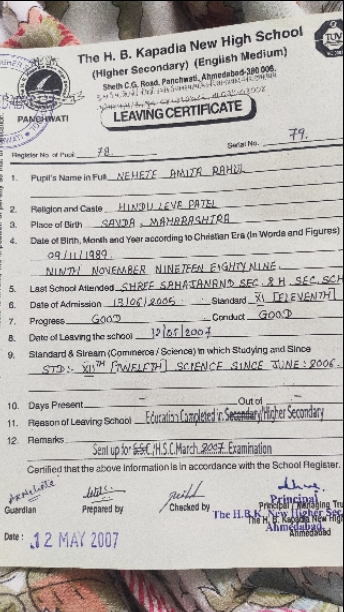 The H. B. Kapadia New High School
(Higher Secondary) (English Medium)
Sheth C.G. Road, Panchwati, Ahmedabad-380 006.
PANCHWATI
LEAVING CERTIFICATE
Serial No. 79.
Register No. of Pupil 78
1. Pupil's Name in Full NEHETE AMITA RAHUL
2. Religion and Caste HINDU LEVE PATEL
3. Place of Birth SAVDA, MAHARASHTRA
4. Date of Birth, Month and Year according to Christian Era (In Words and Figures)
09/11/1989.
NINTH NOVEMBER NINETEEN EIGHTY NINE.
5. Last School Attended SHREE SAHAJANAND SEC. & H. SEC. SCH
6. Date of Admission 13/06/2005 Standard XI [ELEVENTH]
7. Progress GOOD Conduct GOOD
8. Date of Leaving the school 12/05/2007
9. Standard & Stream (Commerce / Science) in which Studying and Since
STD:- XIITH [TWELETH] SCIENCE SINCE JUNE:2006.
10. Days Present - Out of -
11. Reason of Leaving School Education Completed in Secondary/Higher Secondary
12. Remarks Sent up for SSC/H.S.C. March 2007 Examination
Certified that the above information is in accordance with the School Register.
Guardian Prepared by Checked by Principal
Principal / Managing Tru
The H.B.K. New Higher Sec.
The H. B. Kapadia New High
Ahmedabad.
Ahmedabad
Date : 12 MAY 2007